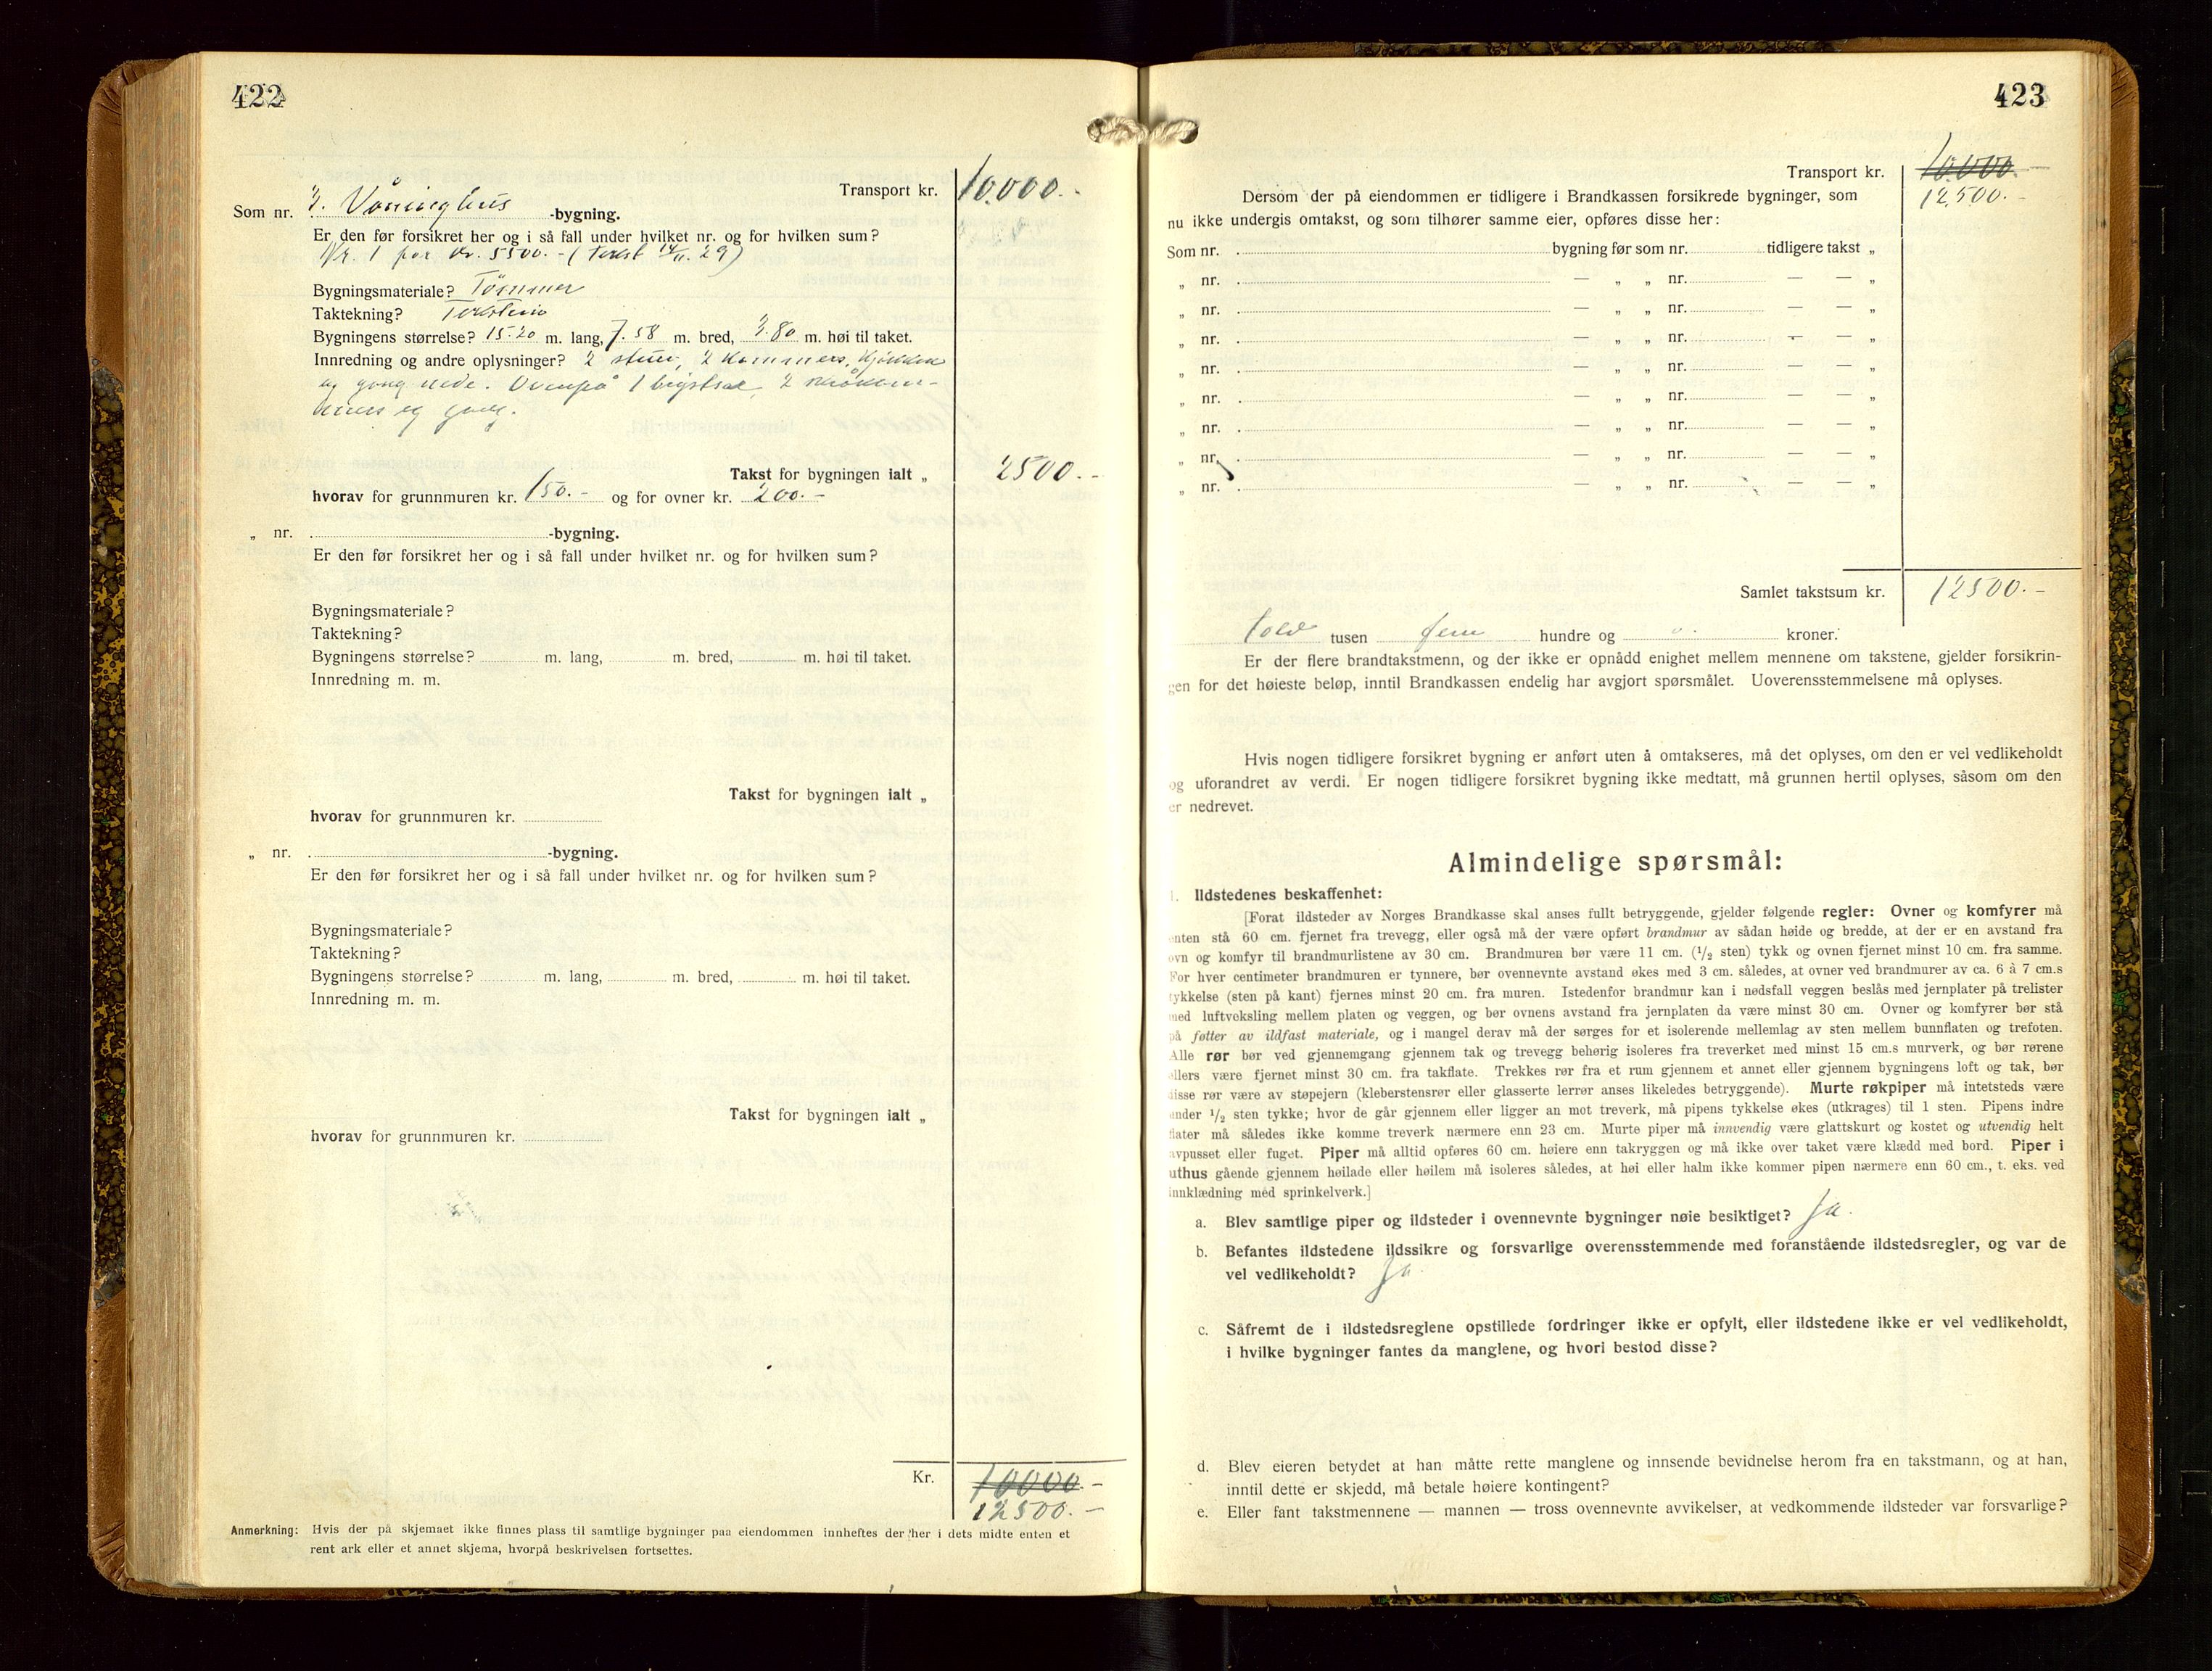 422
Transport kr. 10.000.-
Som nr. 3. Våninghus -bygning.
Er den før forsikret her og i så fall under hvilket nr. og for hvilken sum?
Nr. 1 for kr. 5500.- (Takst 14/11. 29)
Bygningsmateriale? Tømmer
Taktekning? Takstein
Bygningens størrelse? 15.20 m. lang, 7.58 m. bred, 3.80 m. høi til taket.
Innredning og andre oplysninger? 2 stuer, 2 kammers, kjøkken
og gang nede. Ovenpå 1 2 skråkam-
mers og gang.
Takst for bygningen ialt „ 2500.-
hvorav for grunnmuren kr. 150.- og for ovner kr. 200.-
„ nr. -bygning.
Er den før forsikret her og i så fall under hvilket nr. og for hvilken sum?
Bygningsmateriale?
Taktekning?
Bygningens størrelse? m. lang, m. bred, m. høi til taket.
Innredning m. m.
Takst for bygningen ialt „
hvorav for grunnmuren kr.
„ nr. -bygning.
Er den før forsikret her og i så fall under hvilket nr. og for hvilken sum?
Bygningsmateriale?
Taktekning?
Bygningens størrelse? m. lang, m. bred, m. høi til taket.
Innredning m. m.
Takst for bygningen ialt „
hvorav for grunnmuren kr.
Kr. 10000.-
12500.-
Anmerkning: Hvis der på skjemaet ikke finnes plass til samtlige bygninger paa eiendommen innheftes der her i dets midte enten et
rent ark eller et annet skjema, hvorpå beskrivelsen fortsettes.
423
Transport kr. 10.000.-
12,500.-
Dersom der på eiendommen er tidligere i Brandkassen forsikrede bygninger, som
nu ikke undergis omtakst, og som tilhører samme eier, opføres disse her:
Som nr. bygning før som nr. tidligere takst „
„ nr. — „ „ nr. — — „
„ nr. — „ „ nr. — — „
„ nr. — „ „ nr. — — „
„ nr. — „ „ nr. — — „
„ nr. — „ „ nr. — — „
„ nr. — „ „ nr. — — „
„ nr. — „ „ nr. — — „
„ nr. — „ „ nr. — — „
Samlet takstsum kr. 12500.-
tolv tusen fem hundre og kroner.
Er der flere brandtakstmenn, og der ikke er opnådd enighet mellem mennene om takstene, gjelder forsikrin-
gen for det høieste beløp, inntil Brandkassen endelig har avgjort spørsmålet. Uoverensstemmelsene må oplyses.
Hvis nogen tidligere forsikret bygning er anført uten å omtakseres, må det oplyses, om den er vel vedlikeholdt
og uforandret av verdi. Er nogen tidligere forsikret bygning ikke medtatt, må grunnen hertil oplyses, såsom om den
er nedrevet.
Almindelige spørsmål:
1. Ildstedenes beskaffenhet:
[Forat ildsteder av Norges Brandkasse skal anses fullt betryggende, gjelder følgende regler: Ovner og komfyrer må
enten stå 60 cm. fjernet fra trevegg, eller også må der være opført brandmur av sådan høide og bredde, at der er en avstand fra
ovn og komfyr til brandmurlistene av 30 cm. Brandmuren bør være 11 cm. (1/2 sten) tykk og ovnen fjernet minst 10 cm. fra samme.
For hver centimeter brandmuren er tynnere, bør ovennevnte avstand økes med 3 cm. således, at ovner ved brandmurer av ca. 6 à 7 cm.s
tykkelse (sten på kant) fjernes minst 20 cm. fra muren. Istedenfor brandmur kan i nødsfall veggen beslås med jernplater på trelister
med luftveksling mellem platen og veggen, og bør ovnens avstand fra jernplaten da være minst 30 cm. Ovner og komfyrer bør stå
på føtter av ildfast materiale, og i mangel derav må der sørges for et isolerende mellemlag av sten mellem bunnflaten og trefoten.
Alle rør bør ved gjennemgang gjennem tak og trevegg behørig isoleres fra treverket med minst 15 cm.s murverk, og bør rørene
ellers være fjernet minst 30 cm. fra takflate. Trekkes rør fra et rum gjennem et annet eller gjennem bygningens loft og tak, bør
disse rør være av støpejern (kleberstensrør eller glasserte lerrør anses likeledes betryggende). Murte røkpiper må intetsteds være
under 1/2 sten tykke; hvor de går gjennem eller ligger an mot treverk, må pipens tykkelse økes (utkrages) til 1 sten. Pipens indre
flater må således ikke komme treverk nærmere enn 23 cm. Murte piper må innvendig være glattskurt og kostet og utvendig helt
avpusset eller fuget. Piper må alltid opføres 60 cm. høiere enn takryggen og må ikke over taket være klædd med bord. Piper i
uthus gående gjennem høilade eller høilem må isoleres således, at høi eller halm ikke kommer pipen nærmere enn 60 cm., t. eks. ved
innklædning med sprinkelverk.]
a. Blev samtlige piper og ildsteder i ovennevnte bygninger nøie besiktiget? Ja.
b. Befantes ildstedene ildssikre og forsvarlige overensstemmende med foranstående ildstedsregler, og var de
vel vedlikeholdt? Ja
c. Såfremt de i ildstedsreglene opstillede fordringer ikke er opfylt, eller ildstedene ikke er vel vedlikeholdt,
i hvilke bygninger fantes da manglene, og hvori bestod disse?
d. Blev eieren betydet at han måtte rette manglene og innsende bevidnelse herom fra en takstmann, og at han,
inntil dette er skjedd, må betale høiere kontingent?
e. Eller fant takstmennene — mannen — tross ovennevnte avvikelser, at vedkommende ildsteder var forsvarlige?